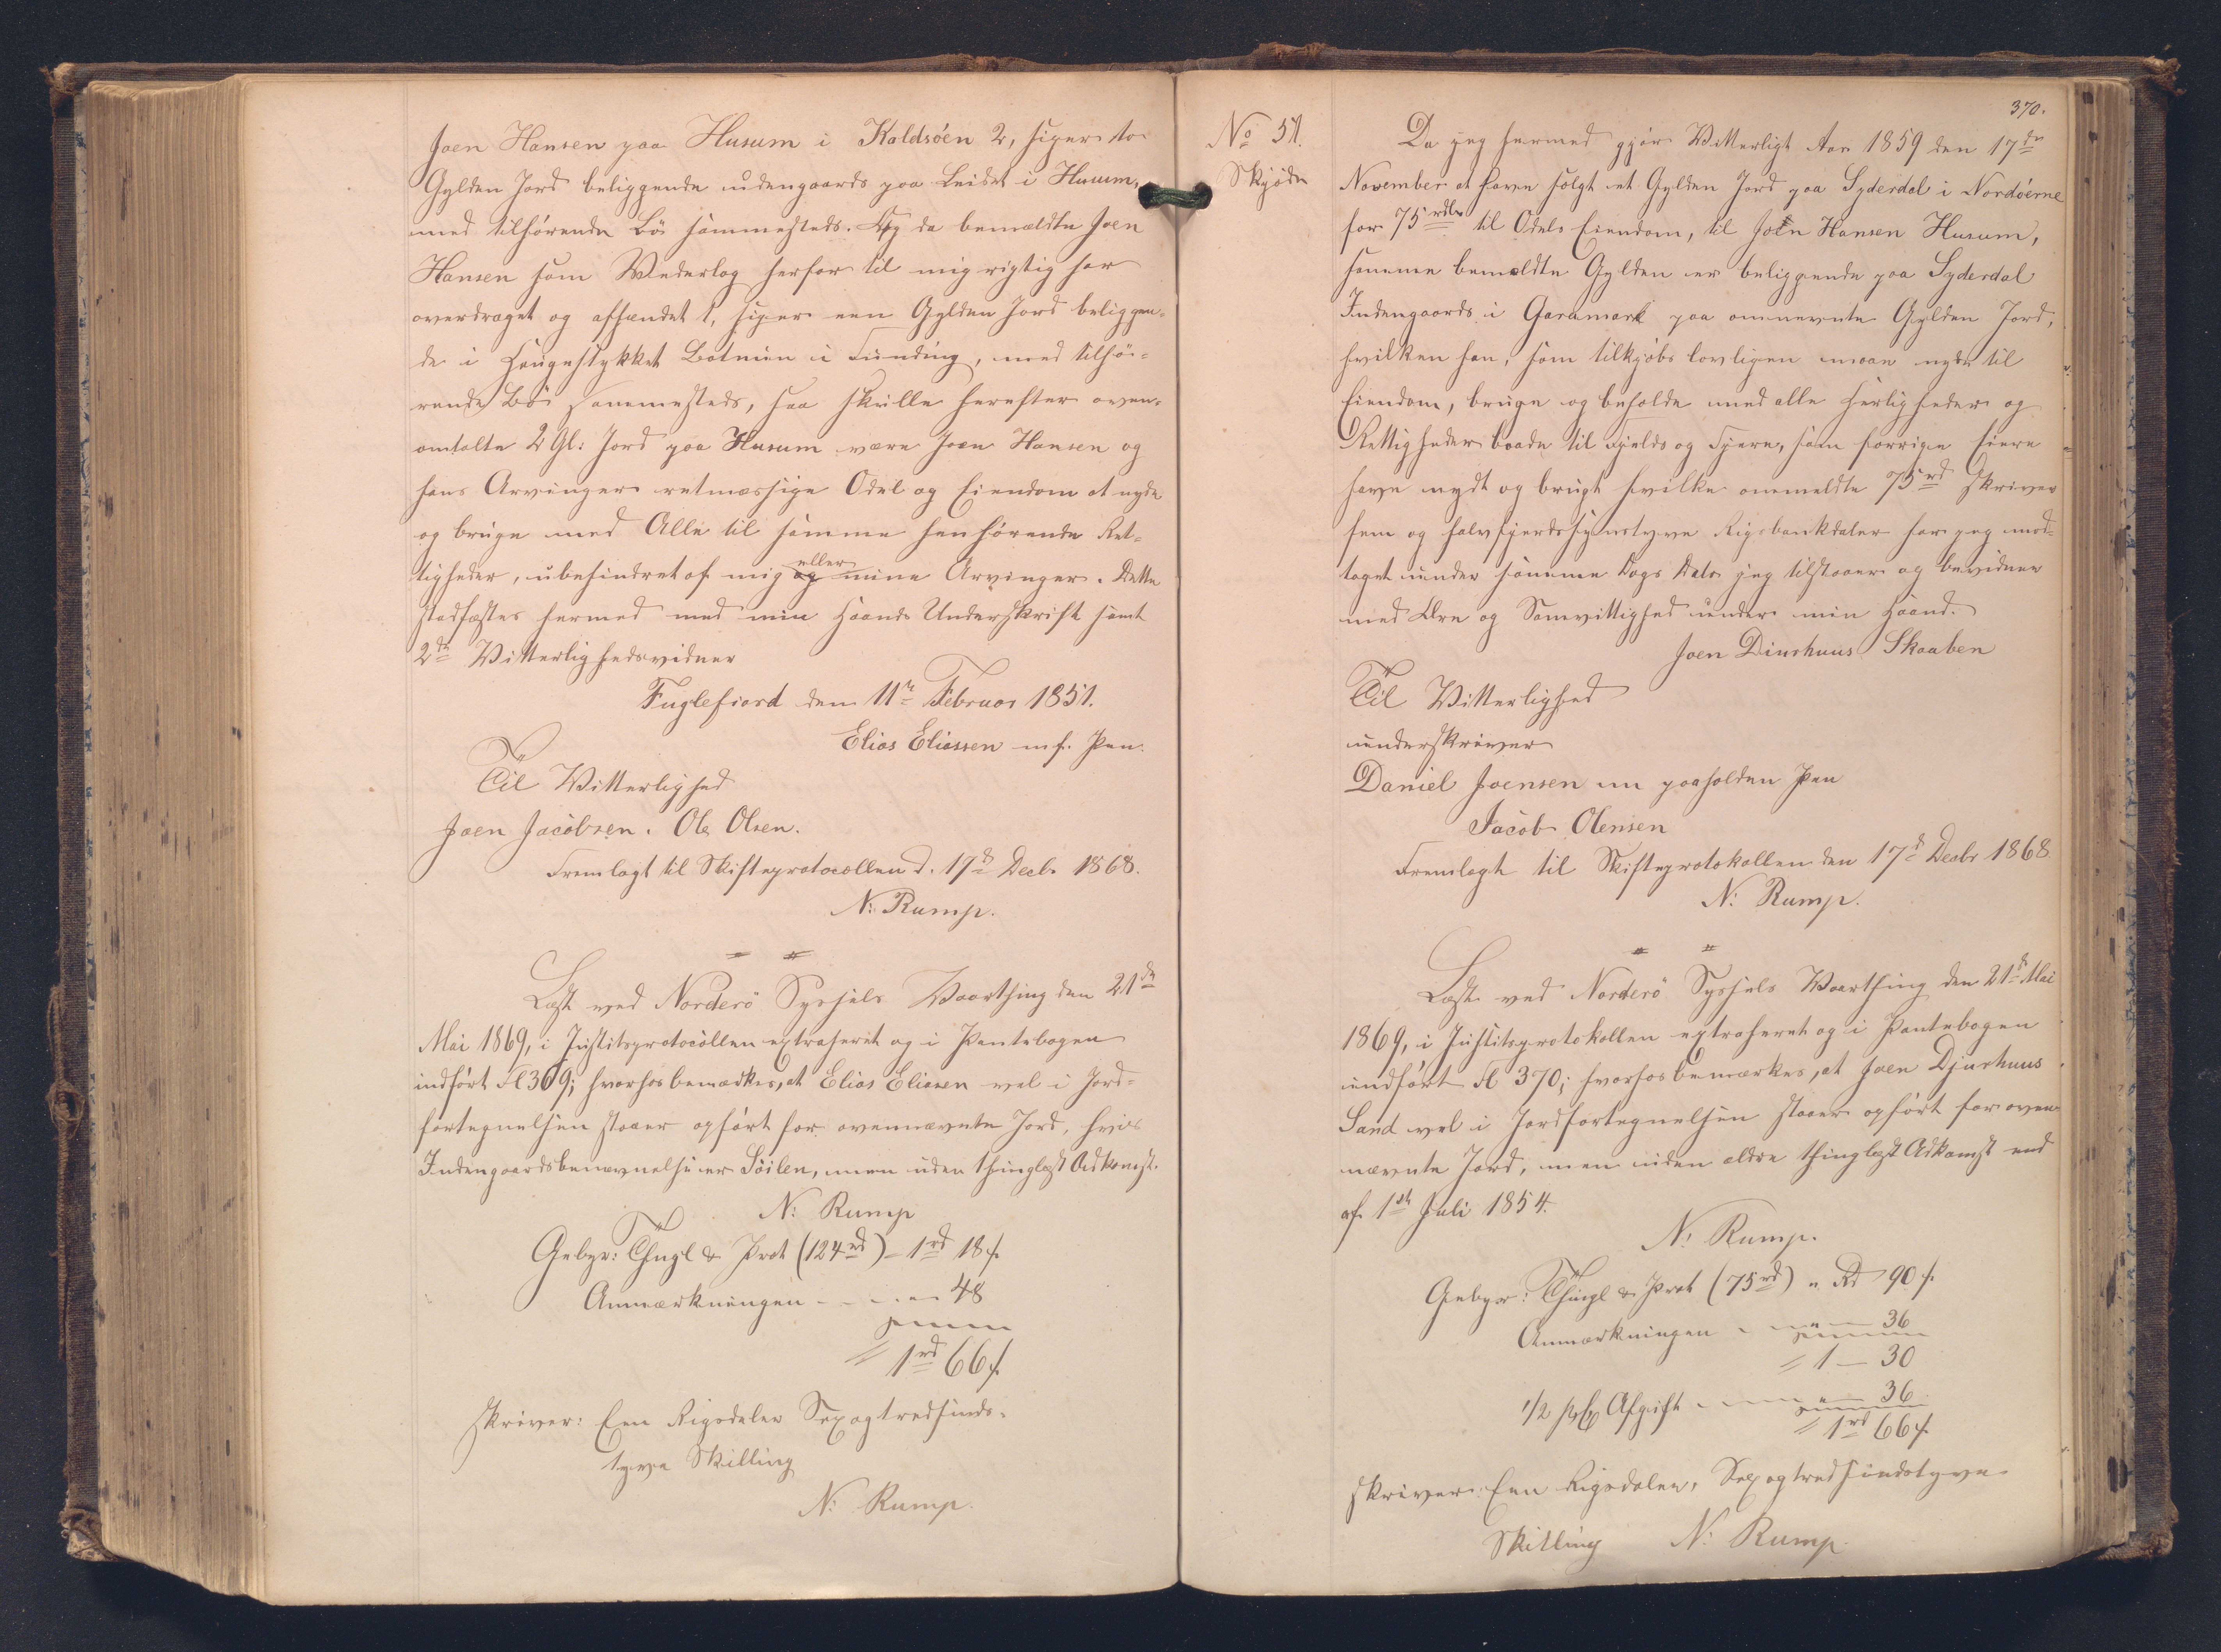 Joen Hansen paa Husum i Kaldsöen 2, siger to
Gylden Jord beliggende udengaards paa Leidet i Husum,
med tilhørende Bö sammesteds. Og da bemældte Joen
Hansen som Wederlag herfor til mig rigtig har
overdraget og afhændet 1, siger een Gylden Jord beliggen-
de i Haugestykket Botnien i Funding, med tilhö-
rende Bö sammesteds, saa skulle herefter oven-
omtalte 2 Gl: Jord paa Husum være Joen Hansen og
hans Arvinger retmæssige Odel og Eiendom at nyde
og bruge med Alle til samme henhørende Ret-
tigheder, ubehindret af mig og eller mine Arvinger. Dette
stadfæstes hermed med min Haands Underskrift samt
2de Vitterlighedsvidner
Fuglefiord den 11te Februar 1851.
Elias Eliassen m.f. Pen.
Til Vitterlighed
Joen Jacobsen. Ole Olsen.
Fremlagt til Skifteprotocollen d. 17de Decbr 1868.
N: Rump.
Læst ved Norderö Syssels Vaarthing den 21de
Mai 1869, i Justitsprotocollen extraheret og i Pantebogen
indført Fl 369; hvorhos bemærkes, at Elias Eliasen vel i Jord-
fortegnelsen staaer opført for ovennævnte Jord, hvis
Indengaardsbenævnelse er Söilen, men uden thinglæst Adkomst.
N: Rump
Gebyr: Thngl & Prot (124 rd) - 1 rd 18 s.
Anmærkningen - - - 48
= 1 rd 66 s.
skriver: Een Rigsdaler Sexogtredsinds-
tyve Skilling
N: Rump.
370.
No 51.
Skjöde
Da jeg hermed gjör Vitterligt Aar 1859 den 17de
November at have solgt et Gylden Jord paa Syderdal i Nordöerne
for 75 rdlr til Odels Eiendom, til Joen Hansen Husum,
samme bemeldte Gylden er beliggende paa Syderdal
Indengaards i Garamark paa omnevnte Gylden Jord,
hvilken han, som tilkjöbs lovligen maae nyde til
Eiendom, bruge og beholde med alle Herligheder og
Rettigheder baade til Fields og Fjere, som forrige Eiere
have nydt og brugt hvilke ommeldte 75 rd skriver
fem og halvfjerdsindstyve Rigsbankdaler har jeg mod-
taget under samme Dags Dato jeg tilstaaer og bevidner
med Ære og Samvittighed under min Haand.
Joen Diurhuus Skaaben
Til Vitterlighed
underskriver
Daniel Joensen m paaholden Pen
Jacob Olensen
Fremlagt til Skifteprotokollen den 17de Decbr 1868
N: Rump.
Læst ved Norderö Syssels Vaarthing den 21de Mai
1869, i Justitsprotokollen extraheret og i Pantebogen
indført Fl 370; hvorhos bemærkes, at Joen Djurhuus
Sand vel i Jordfortegnelsen staaer opført for oven-
nævnte Jord, men uden ældre thinglæst Adkomst end
af 1ste Juli 1854.
N: Rump.
Gebyr: Thingl & Prot (75 rd) " Rd 90 s.
Anmærkningen - - " - 36
= 1 - 30
1/2 pCt Afgift - - " - 36
= 1 rd 66 s.
skriver: Een Rigsdaler, Sexogtredsindstyve
Skilling N: Rump.